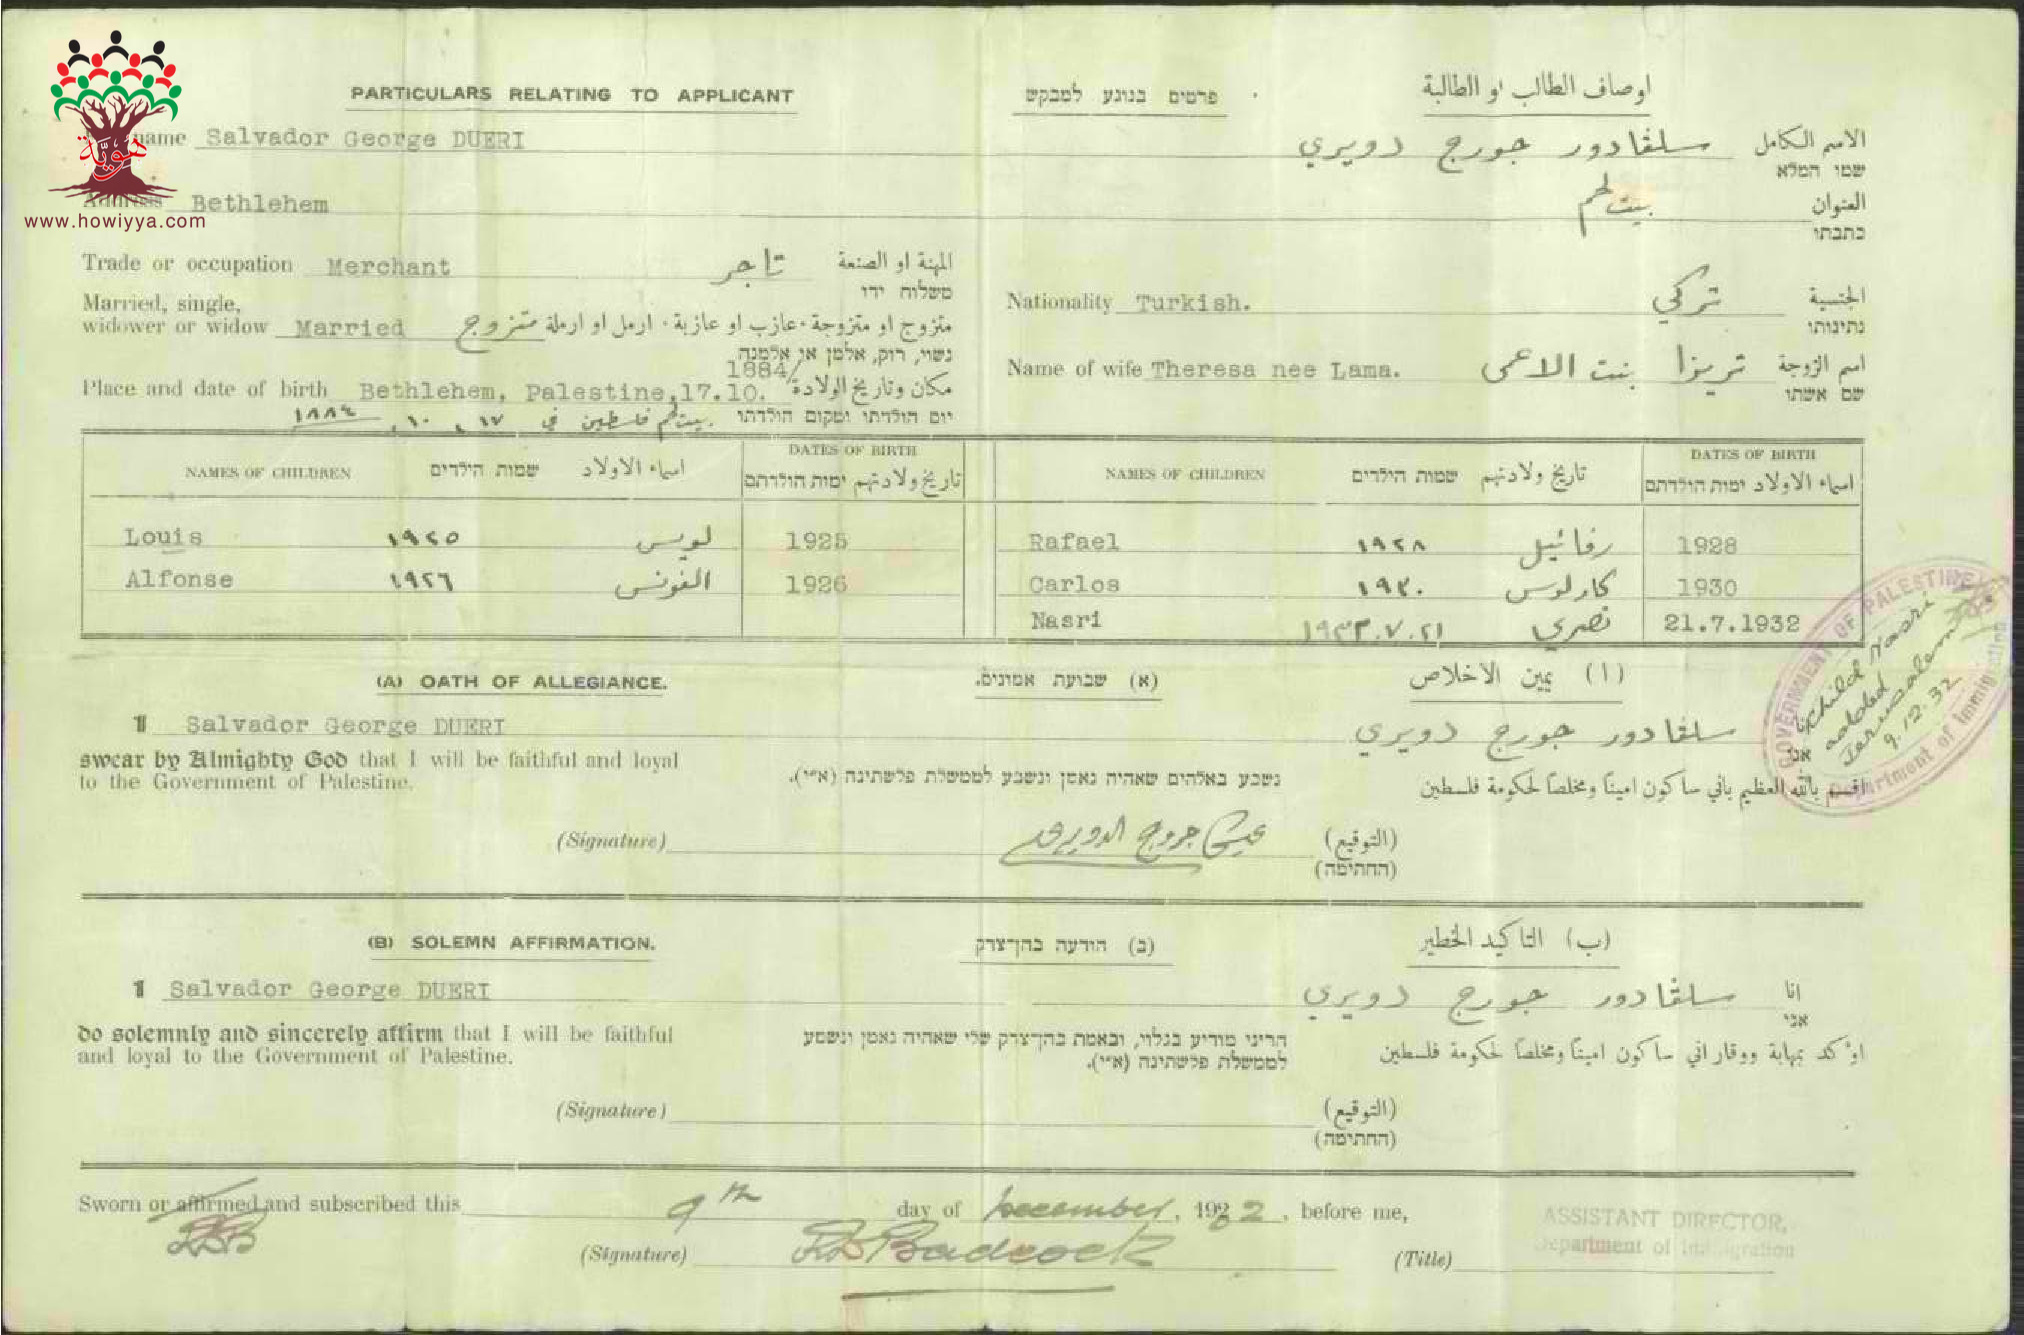 هويّة
www.howiyya.com
PARTICULARS RELATING TO APPLICANT
פרטים בנוגע למבקש
اوصاف الطالب او الطالبة
name Salvador George DUERI
سلڤادور جورج دويري
الاسم الكامل
שמו המלא
Address Bethlehem
بيت لحم
العنوان
כתבתו
Trade or occupation Merchant
تاجر
المهنة او الصنعة
משלוח ידו
Nationality Turkish.
تركي
الجنسية
נתינותו
Married, single,
widower or widow Married
متزوج
متزوج او متزوجة • عازب او عازبة • ارمل او ارملة
נשוי, רוק, אלמן או אלמנה
Name of wife Theresa nee Lama.
تريزا بنت الاعمى
اسم الزوجة
שם אשתו
1884/
Place and date of birth Bethlehem, Palestine,17.10.
مكان وتاريخ الولادة
יום הולדתו ומקום הולדתו
بيت لحم فلسطين في ١٧ ، ١٠ ، ١٨٨٤
NAMES OF CHILDREN שמות הילדים اسماء الاولاد
DATES OF BIRTH
ימות הולדתם تاريخ ولادتهم
NAMES OF CHILDREN שמות הילדים تاريخ ولادتهم
DATES OF BIRTH
ימות הולדתם اسماء الاولاد
Louis ١٩٢٥ لويس 1925
Alfonse ١٩٢٦ الفونس 1926
Rafael ١٩٢٨ رفائيل 1928
Carlos ١٩٣٠ كارلوس 1930
Nasri ١٩٣٢.٧.٢١ نصري 21.7.1932
GOVERNMENT OF PALESTINE
Department of Immigration
Child Nasri
added
Jerusalem
9.12.32
(A) OATH OF ALLEGIANCE.
(א) שבועת אמונים.
(ا) يمين الاخلاص
I Salvador George DUERI
سلڤادور جورج دويري
انا
אני
swear by Almighty God that I will be faithful and loyal
to the Government of Palestine.
נשבע באלהים שאהיה נאמן ונשמע לממשלת פלשתינה (א״י).
اقسم بالله العظيم باني ساكون اميناً ومخلصاً لحكومة فلسطين
(Signature)
(التوقيع)
(החתימה)
(B) SOLEMN AFFIRMATION.
(ב) הודעה בהן־צדק
(ب) التاكيد الخطير
I Salvador George DUERI
سلڤادور جورج دويري
انا
אני
do solemnly and sincerely affirm that I will be faithful
and loyal to the Government of Palestine.
הריני מודיע בגלוי, ובאמת בהן־צדק שלי שאהיה נאמן ונשמע
לממשלת פלשתינה (א״י).
اؤكد بمهابة ووقار اني ساكون اميناً ومخلصاً لحكومة فلسطين
(Signature)
(التوقيع)
(החתימה)
Sworn or affirmed and subscribed this 9th day of December, 1932, before me,
(Signature) Badcock
(Title)
ASSISTANT DIRECTOR,
Department of Immigration